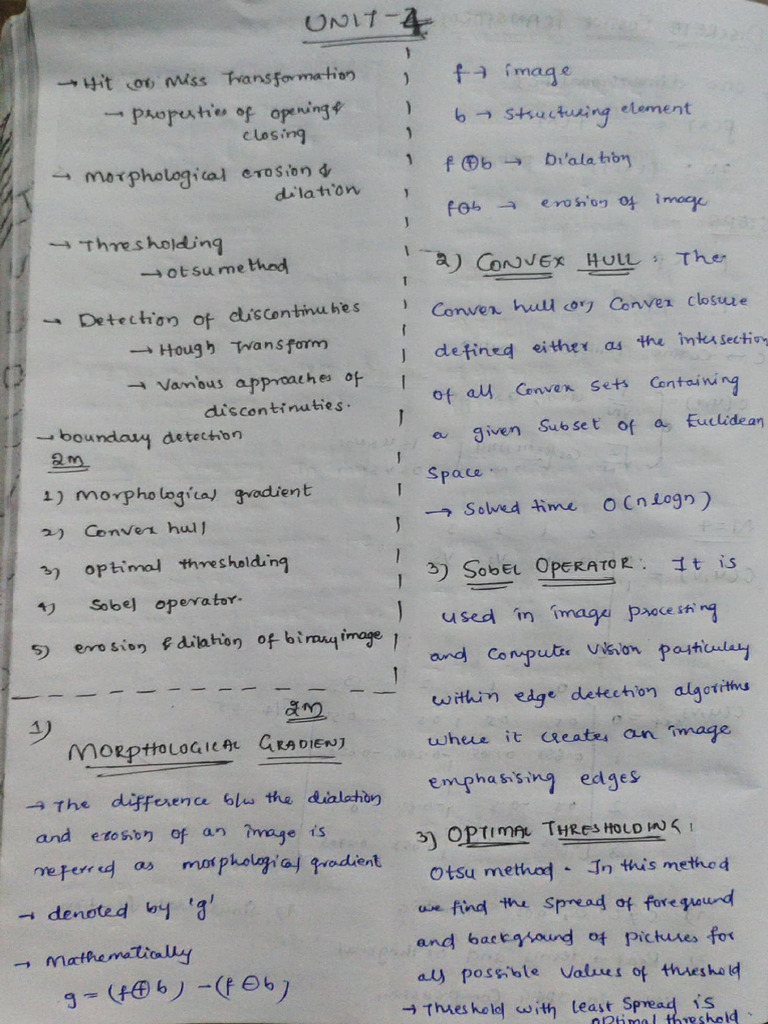 UNIT-4
→ Hit or Miss Transformation
→ properties of opening &
closing
→ morphological erosion &
dilation
→ Thresholding
→ otsu method
→ Detection of discontinuties
→ Hough Transform
→ various approaches of
discontinuties.
→ boundary detection
2m
1) morphological gradient
2) Convex hull
3) optimal thresholding
4) Sobel operator.
5) erosion & dilation of binary image
2M
1)
MORPHOLOGICAL GRADIENT
→ The difference b/w the dialation
and erosion of an image is
referred as morphological gradient
→ denoted by 'g'
→ Mathematically
g = (f⊕b) - (f⊖b)
f → image
b → structuring element
f⊕b → Dialation
f⊖b → erosion of image
2) CONVEX HULL : The
Convex hull or, Convex closure
defined either as the intersection
of all Convex sets Containing
a given Subset of a Euclidean
Space.
→ Solved time O(nlogn)
3) SOBEL OPERATOR: It is
used in image processing
and Computer vision particulary
within edge detection algorithms
where it creates an image
emphasising edges
3) OPTIMAL THRESHOLDING:
Otsu method. In this method
we find the spread of foreground
and background of pictures for
all possible values of threshold
→ Threshold with least spread is
optimal threshold.